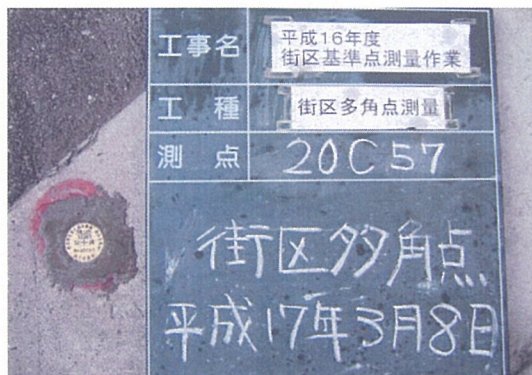 工事名
平成16年度
街区基準点測量作業
工種
街区多角点測量
測点
20C57
街区多角点
平成17年3月8日